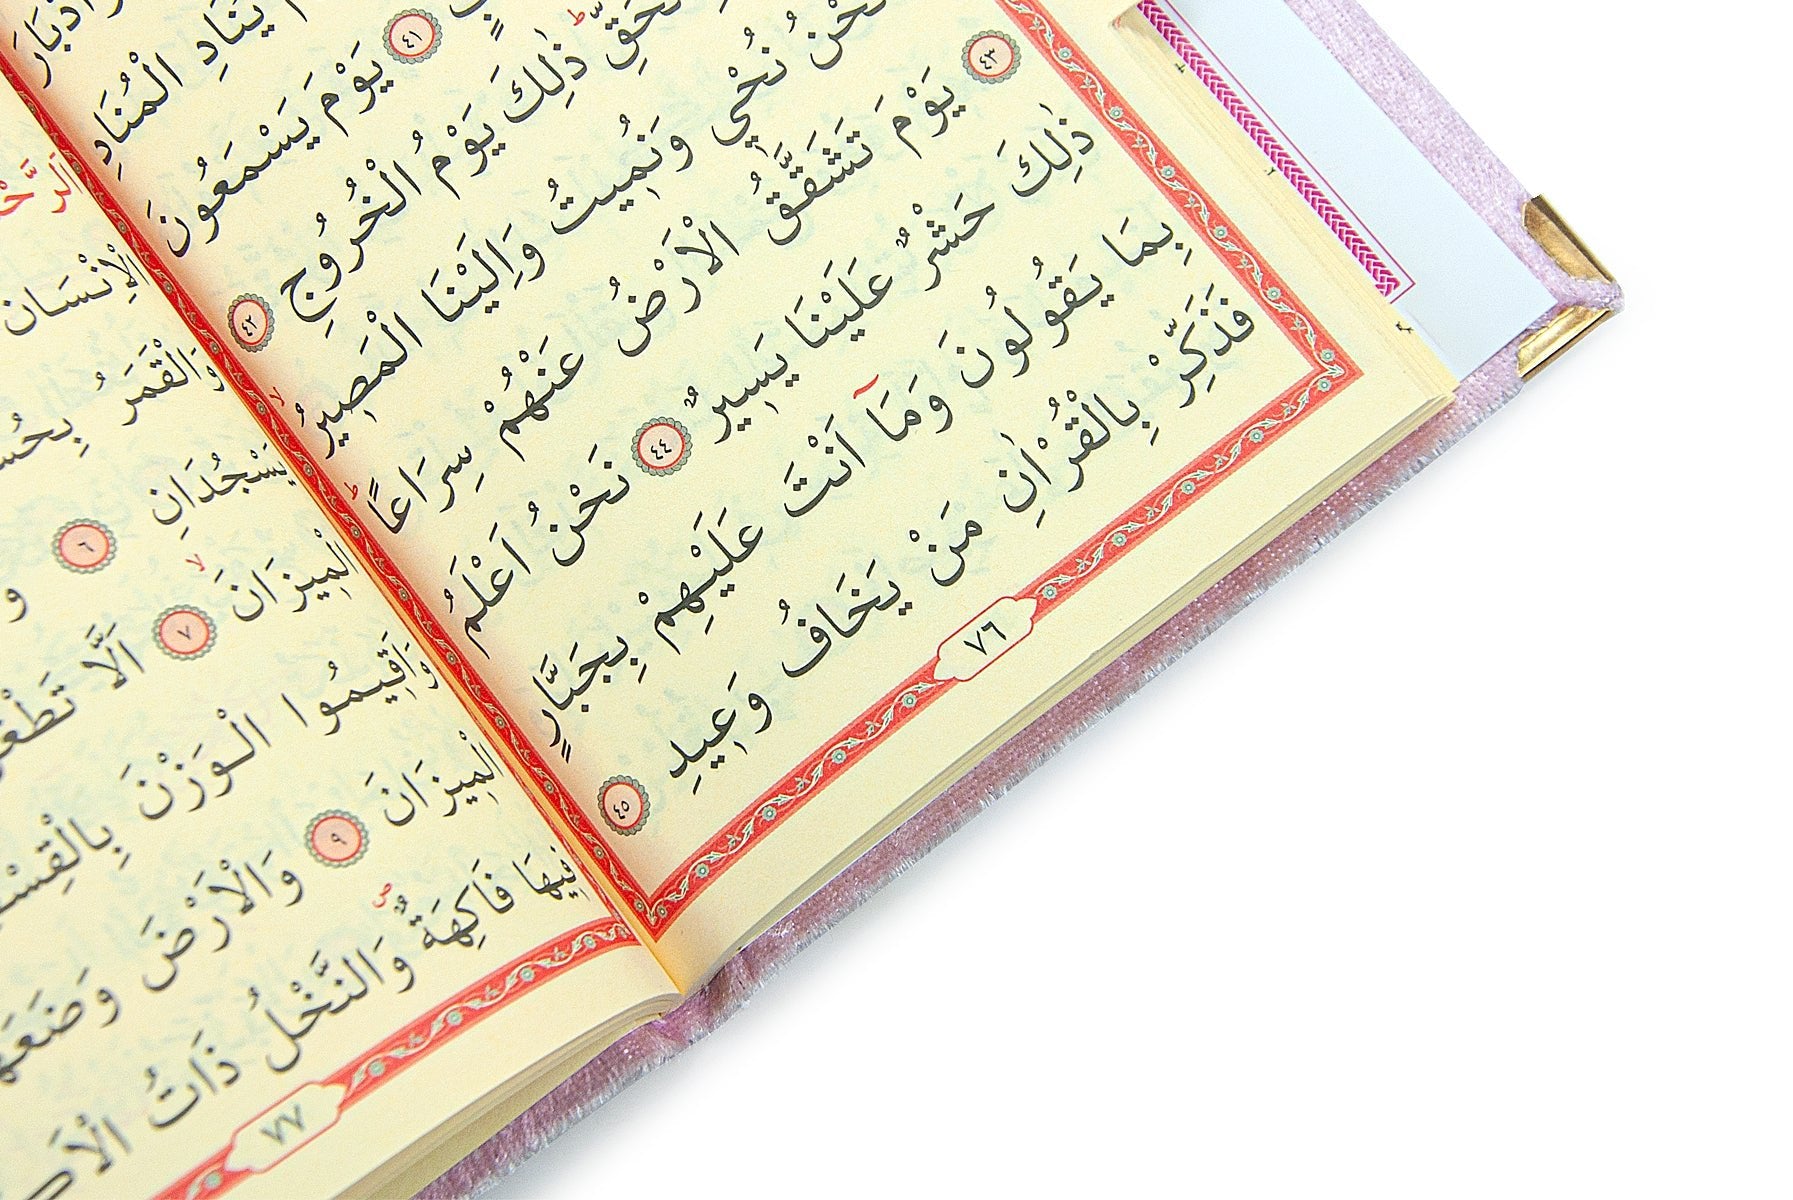 وَاَدْبَارَ
يُنَادِ الْمُنَادِ
٤١ يَوْمَ يَسْمَعُونَ
بِالْحَقِّ ذٰلِكَ يَوْمُ الْخُرُوجِ ٤٢
نَحْنُ نُحْيٖ وَنُمٖيتُ وَاِلَيْنَا الْمَصٖيرُ
٤٣ يَوْمَ تَشَقَّقُ الْاَرْضُ عَنْهُمْ سِرَاعًا
ذٰلِكَ حَشْرٌ عَلَيْنَا يَسٖيرٌ ٤٤ نَحْنُ اَعْلَمُ
بِمَا يَقُولُونَ وَمَٓا اَنْتَ عَلَيْهِمْ بِجَبَّارٍ
فَذَكِّرْ بِالْقُرْاٰنِ مَنْ يَخَافُ وَعٖيدِ ٤٥
٧٦
اَلرَّحْ
الْاِنْسَانَ
وَالْقَمَرُ بِحُسْ
يَسْجُدَانِ ٦ وَ
الْمٖيزَانَ ٧ اَلَّا تَطْغَوْ
وَاَقٖيمُوا الْوَزْنَ بِالْقِسْ
الْمٖيزَانَ ٩ وَالْاَرْضَ وَضَعَهَ
فٖيهَا فَاكِهَةٌ وَالنَّخْلُ ذَاتُ الْاَكْ
٧٧